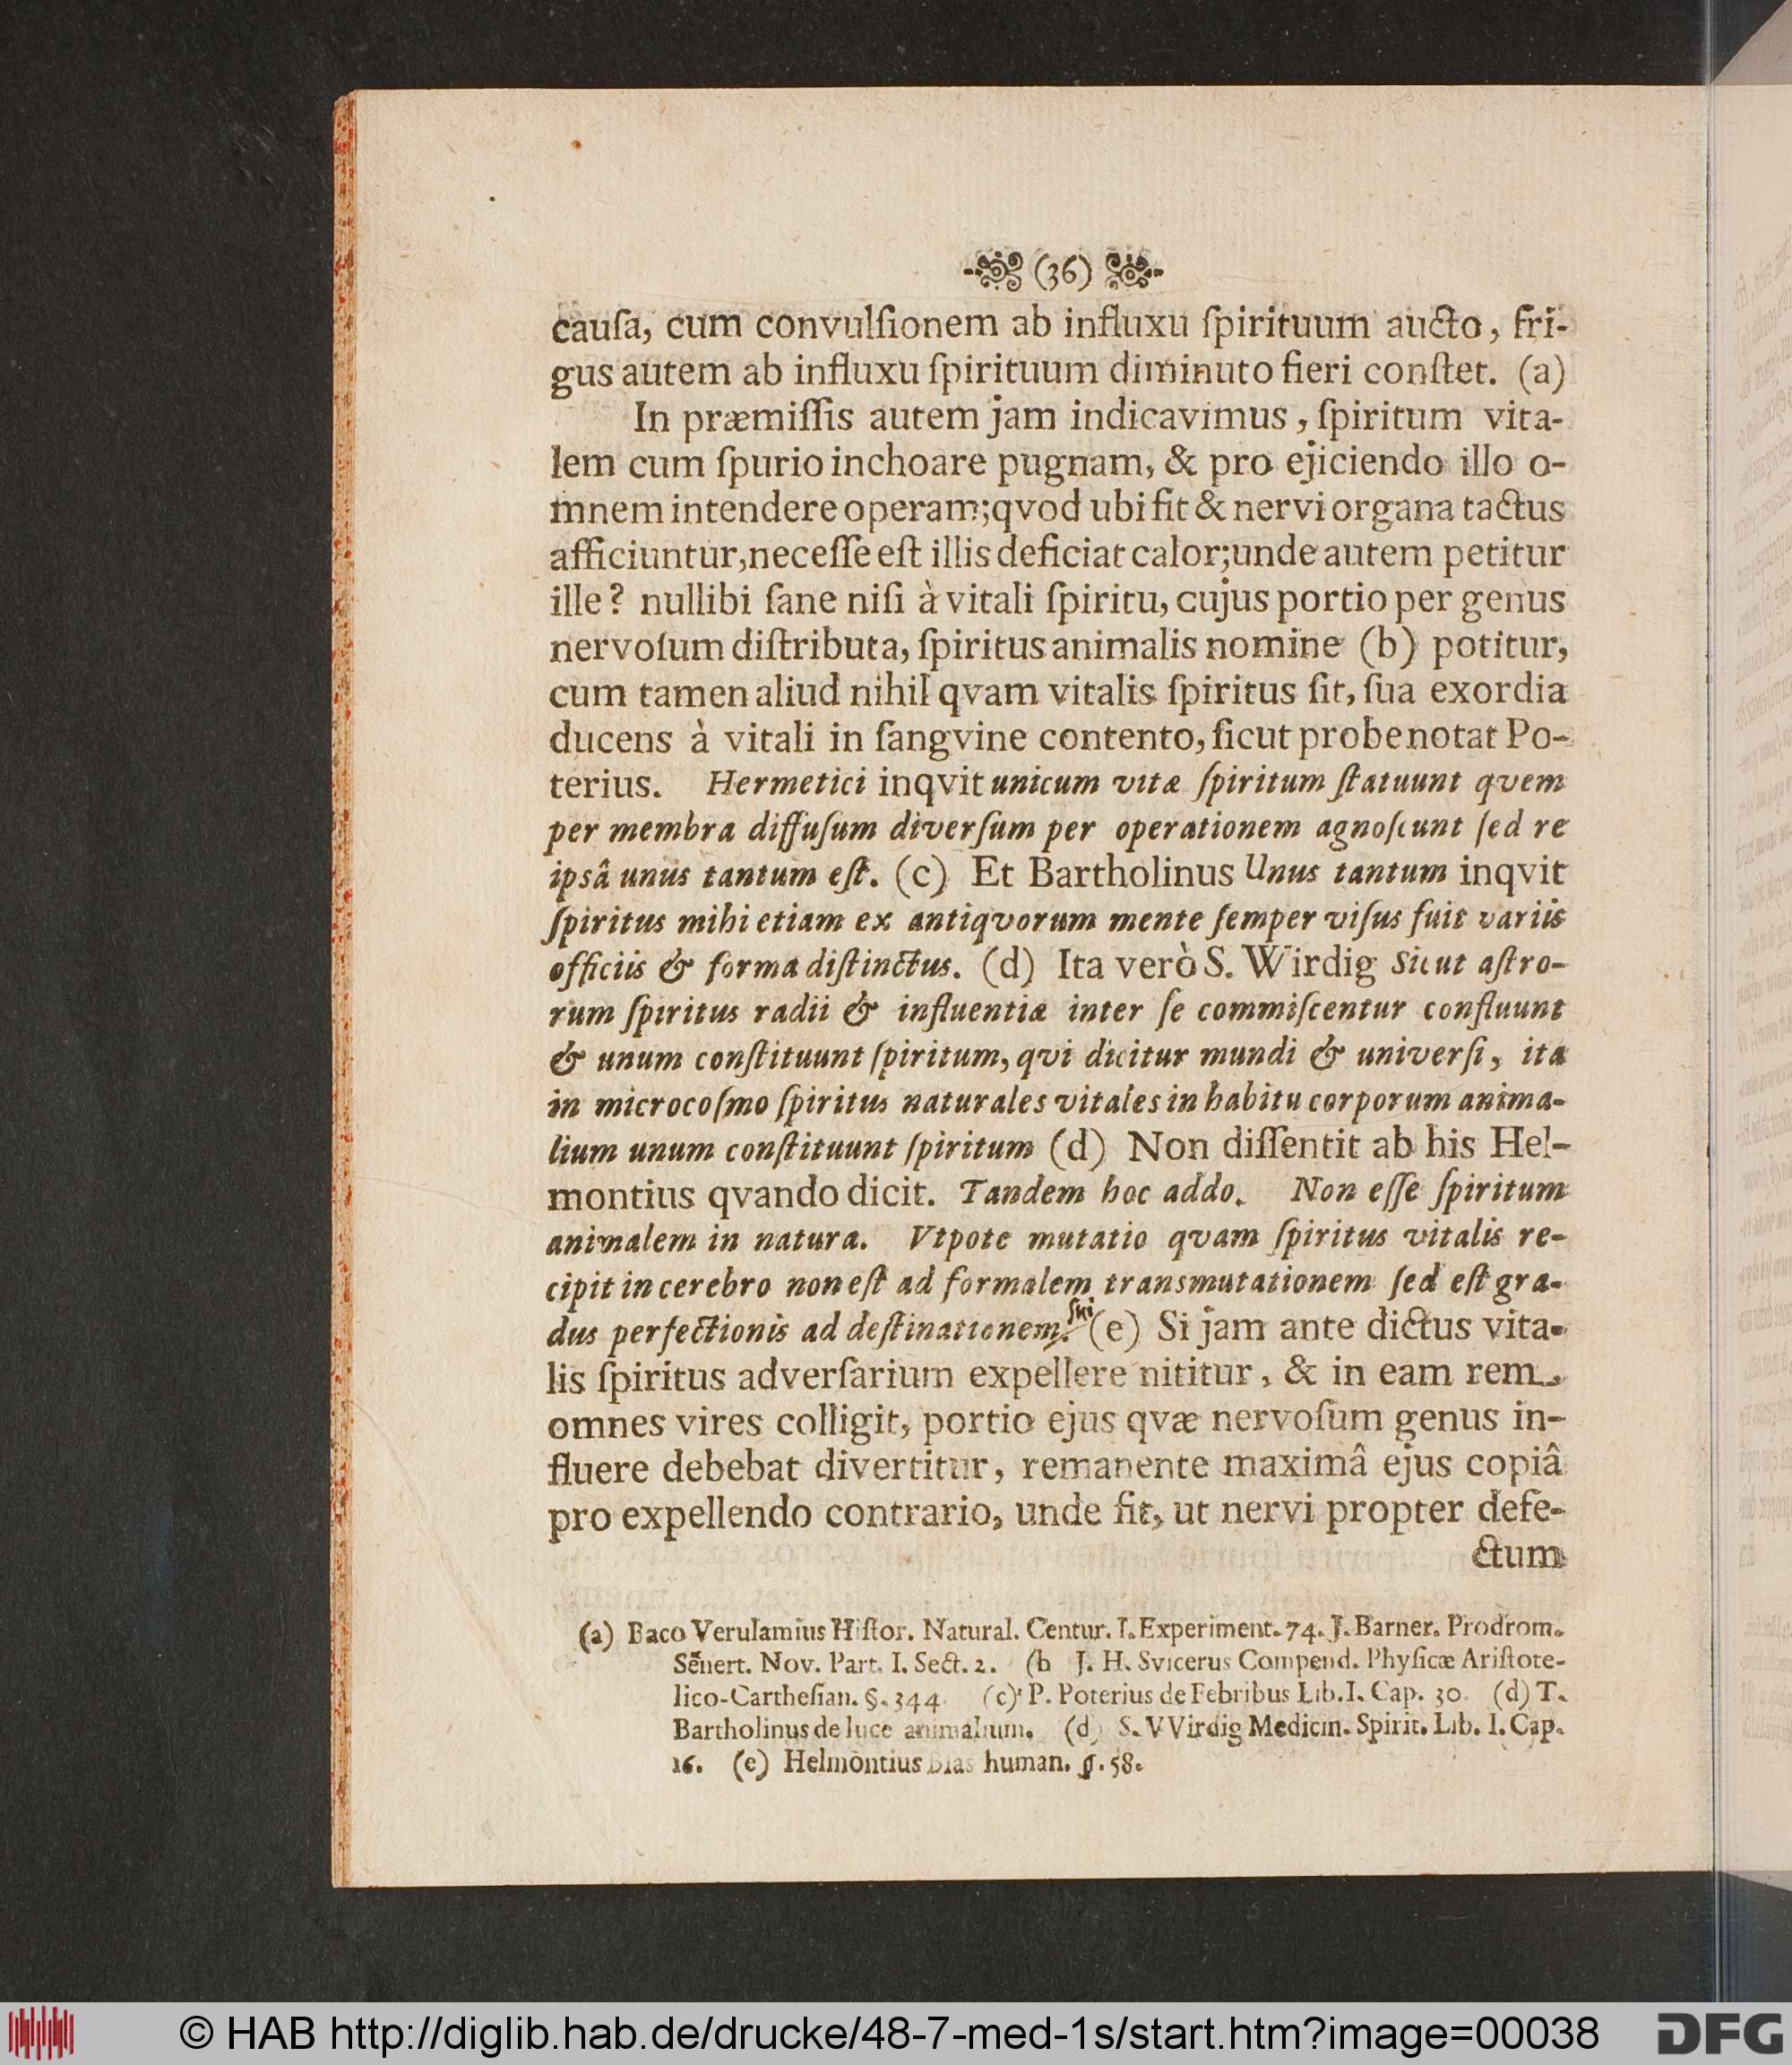 (36)
cauſa, cum convulſionem ab influxu ſpirituum aucto, fri-
gus autem ab influxu ſpirituum diminuto fieri conſtet. (a)
In præmiſſis autem jam indicavimus, ſpiritum vita-
lem cum ſpurio inchoare pugnam, & pro ejiciendo illo o-
mnem intendere operam; qvod ubi fit & nervi organa tactus
afficiuntur, neceſſe eſt illis deficiat calor; unde autem petitur
ille? nullibi ſane niſi à vitali ſpiritu, cujus portio per genus
nervoſum diſtributa, ſpiritus animalis nomine (b) potitur,
cum tamen aliud nihil qvam vitalis ſpiritus ſit, ſua exordia
ducens à vitali in ſangvine contento, ſicut probe notat Po-
terius. Hermetici inqvit unicum vitæ ſpiritum ſtatuunt qvem
per membra diffuſum diverſum per operationem agnoſcunt ſed re
ipsâ unus tantum eſt. (c) Et Bartholinus Unus tantum inqvit
ſpiritus mihi etiam ex antiqvorum mente ſemper viſus fuit variis
officiis & forma diſtinctus. (d) Ita verò S. Wirdig Sicut aſtro-
rum ſpiritus radii & influentiæ inter ſe commiſcentur confluunt
& unum conſtituunt ſpiritum, qvi dicitur mundi & univerſi, ita
in microcoſmo ſpiritus naturales vitales in habitu corporum anima-
lium unum conſtituunt ſpiritum (d) Non diſſentit ab his Hel-
montius qvando dicit. Tandem hoc addo. Non eſſe ſpiritum
animalem in natura. Vtpote mutatio qvam ſpiritus vitalis re-
cipit in cerebro non eſt ad formalem transmutationem ſed eſt gra-
dus perfectionis ad deſtinationem. (e) Si jam ante dictus vita-
lis ſpiritus adverſarium expellere nititur, & in eam rem
omnes vires colligit, portio ejus qvæ nervoſum genus in-
fluere debebat divertitur, remanente maximâ ejus copiâ
pro expellendo contrario, unde fit, ut nervi propter defe-
ctum
(a) Baco Verulamius Hiſtor. Natural. Centur. I. Experiment. 74. J. Barner. Prodrom.
Sennert. Nov. Part. I. Sect. 2. (b J. H. Svicerus Compend. Phyſicæ Ariſtote-
lico-Cartheſian. §. 344. (c) P. Poterius de Febribus Lib. I. Cap. 30. (d) T.
Bartholinus de luce animalium. (d) S. VVirdig Medicin. Spirit. Lib. I. Cap.
16. (e) Helmontius Blas human. §. 58.
© HAB http://diglib.hab.de/drucke/48-7-med-1s/start.htm?image=00038
DFG